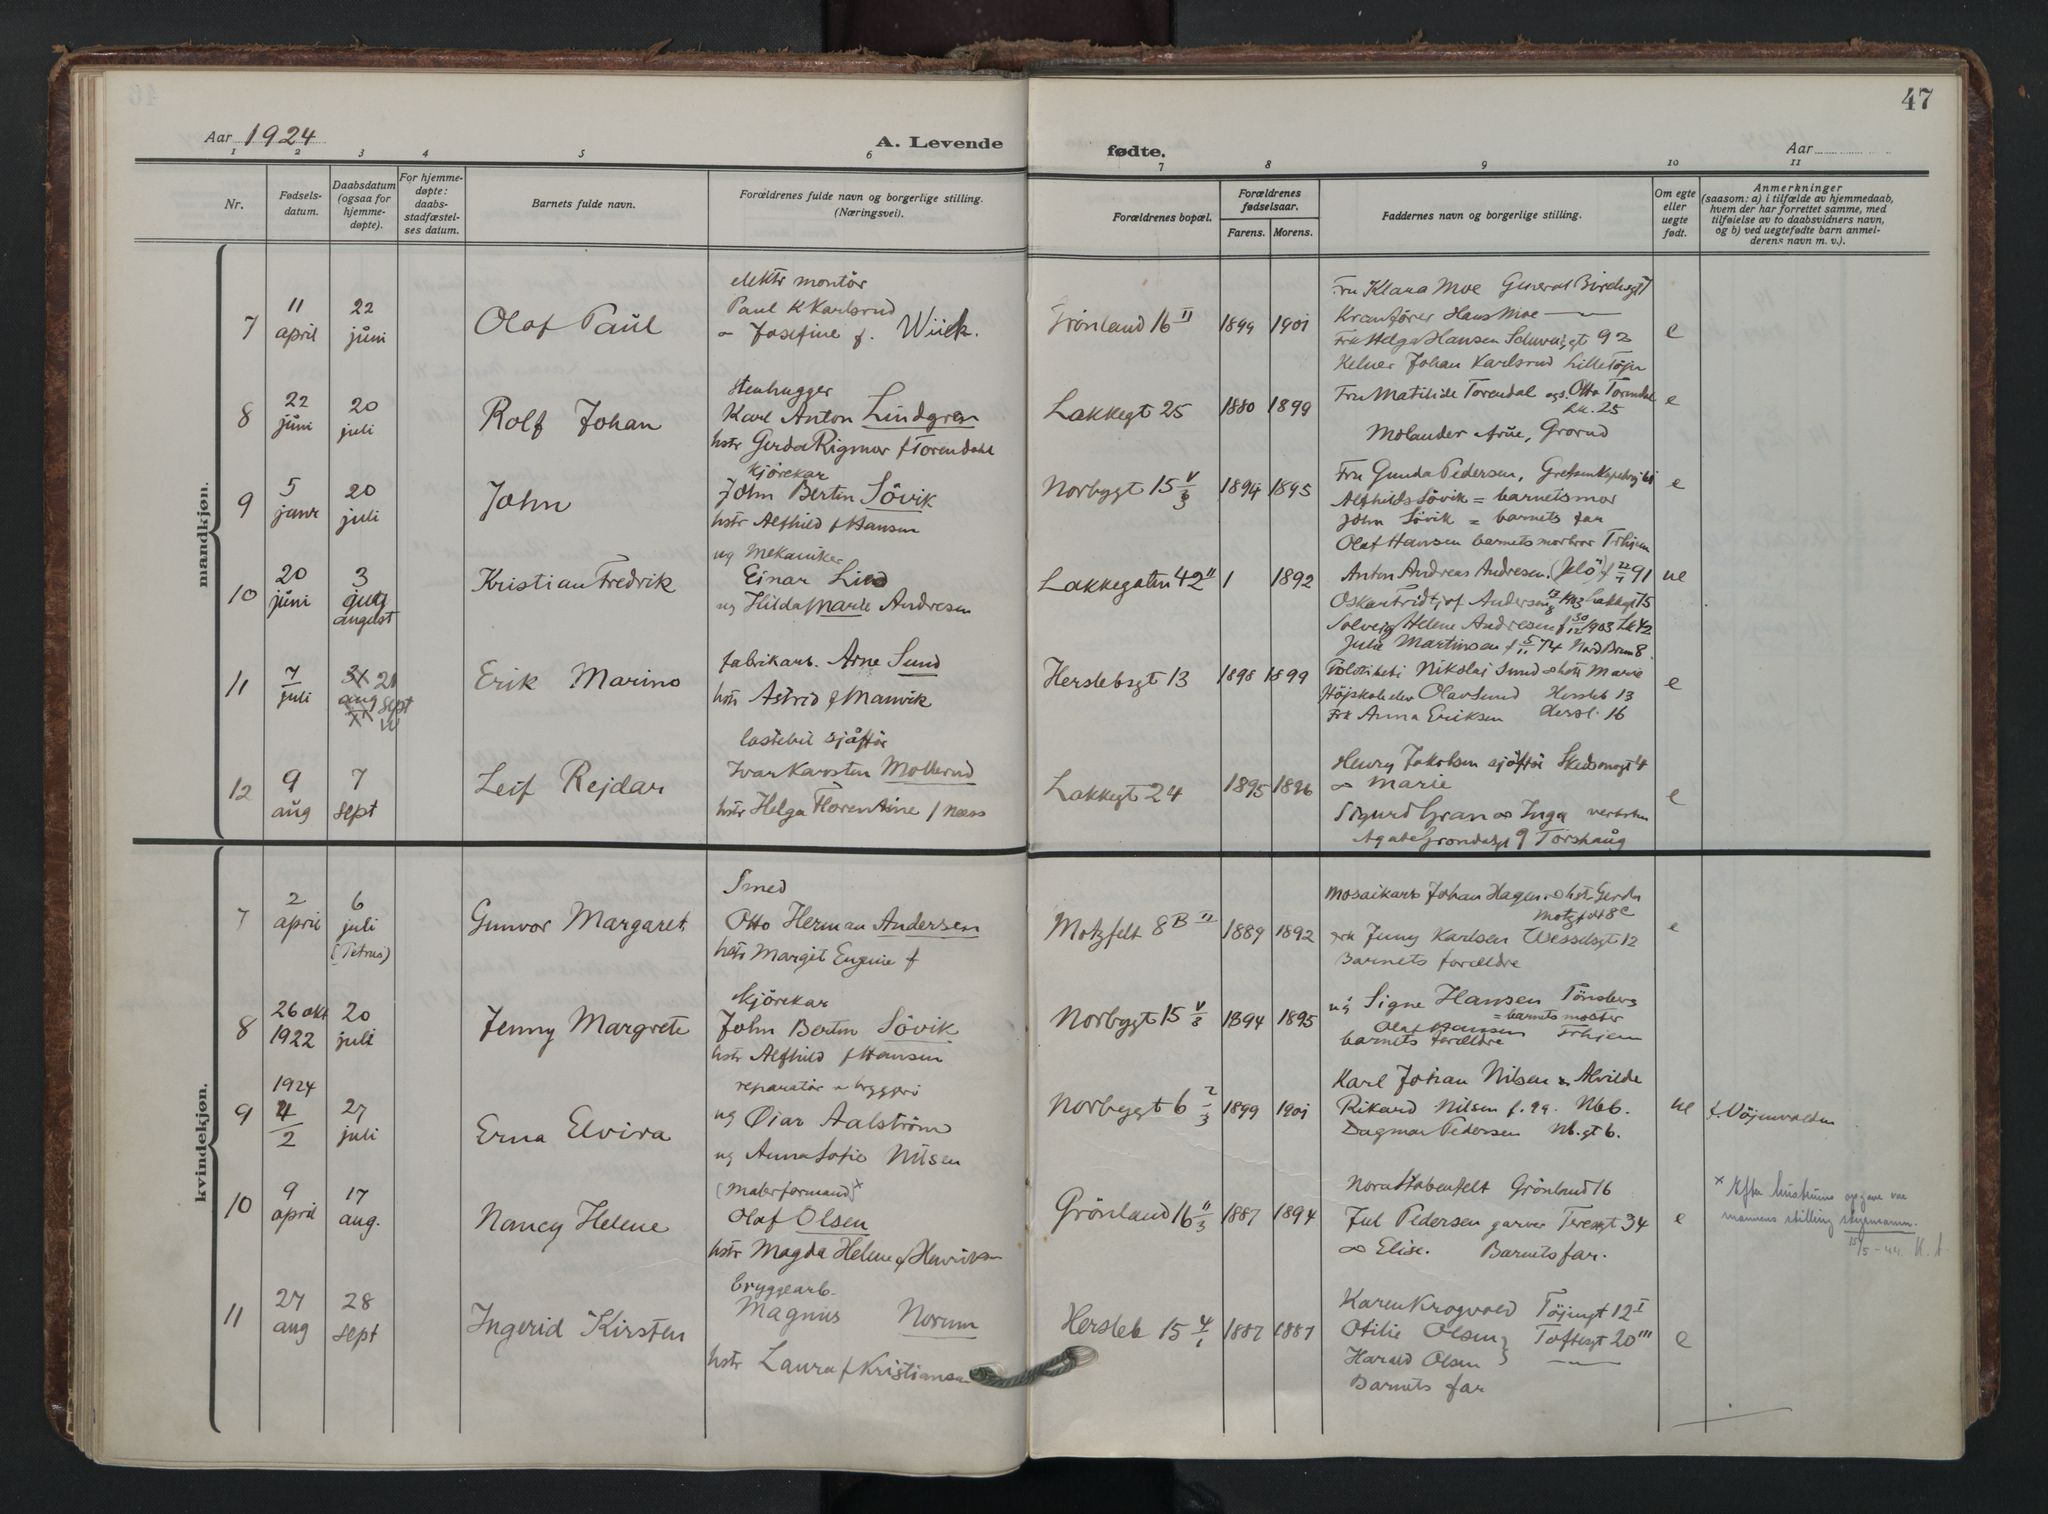 47
Aar 1924
A. Levende
fødte.
Aar
1 2 3 4 5 6 7 8 9 10 11
Nr.
Fødsels-
datum.
Daabsdatum
(ogsaa for
hjemme-
døpte).
For hjemme-
døpte:
daabs-
stadfæstel-
ses datum.
Barnets fulde navn.
Forældrenes fulde navn og borgerlige stilling.
(Næringsvei).
Forældrenes bopæl.
Forældrenes
fødselsaar.
Farens. Morens.
Faddernes navn og borgerlige stilling.
Om egte
eller
uegte
født.
Anmerkninger
(saasom: a) i tilfælde av hjemmedaab,
hvem der har forrettet samme, med
tilføielse av to daabsvidners navn,
og b) ved uegtefødte barn anmel-
derens navn m. v.).
mandkjøn.
7
11
april
22
juni
Olaf Paul
elektr montör
Paul K Karlsrud
Josefine f. Wiick.
Grönland 16 II
1899 1901
Fru Klara Moe General Birchsgt
Kranförer Hans Moe
Frk Helga Hansen Schweigt 92
Kelner Johan Karlsrud Lille Töjen
e
8
22
juni
20
juli
Rolf Johan
Stenhugger
Karl Anton Lindgren
hstr Gerda Rigmor f Torendahl
Lakkegt 25
1880 1899
Fru Mathilde Torendal ogs. Otto Torendal
Lk. 25
Molander Frue, Grorud
e
9
5
janr
20
juli
John
Kjörekar
John Bertin Sövik
hstr Alfhild f Hansen
Norbygt 15 V/3
1894 1895
Fru Gunda Pedersen,
Alfhild Sövik = barnets mor
John Sövik = barnets far
Olaf Hansen barnets morbror Trhjem
e
10
20
juni
3
august
Kristian Fredrik
ug mekaniker
Einar Lied
ug Hilda Marie Andresen
Lakkegaten 42 II
1 1892
Anton Andreas Andresen. (Jelö) f 22/1 91
Oskar Fridtjof Andersen Lakkegt 15
Solveig Helene Andresen f 30/12 1903 Lk 42
Julie Martinsen f 5/11 74 Nord Brun 8.
ue
11
7
juli
21
sept
Erik Marino
fabrikarb. Arne Sund
hstr Astrid f Manvik
Herslebsgt 13
1898 1899
Nikolai Sund hstr Marie
Höjskoleelev Olav Sund Hersleb 13
Frk Anna Eriksen Hersl. 16
e
12
9
aug
7
sept
Leif Rejdar
lastebil sjåfför
Ivar Karsten Mollerud
hstr Helga Florentine f Næss
Lakkegt 24
1895 1896
Henry Jakobsen sjåfför Skedsmogt 4
Marie
Sigurd Gran Inga
Agate Grondalsgt 9 Torshaug
e
kvindekjøn.
7
2
april
6
juli
(Petrus)
Gunvor Margaret
Smed
Otto Herman Andersen
hstr Margit Eugenie f
Motzfelt 8B II
1889 1892
Mosaikarb Johan Hagen hstr Gerda
Motzfelt 8c
Frk Jenny Karlsen Wesselsgt 12
Barnets foreldre
e
8
26 okt
1922
20
juli
Jenny Margrete
Kjörekar
John Bertin Sövik
hstr Alfhild f Hansen
Norbygt 15 V/3
1894 1895
ug Signe Hansen Tönsberg
= barnets moster
Olaf Hansen Trhjem
barnets foreldre
9
1924
4/2
27
juli
Erna Elvira
reparatör bryggeri
ug Øiar Aalström
ug Anna Sofie Nilsen
Norbygt 6 2/3
1899 1901
Karl Johan Nilsen Alvilde
Rikard Nilsen f. 99. Nb 6.
Dagmar Pedersen Nb. gt 6.
ue
10
9
april
17
aug.
Nancy Helene
(Malerformand) x
Olaf Olsen
hstr Magda Helene f Henriksen
Grönland 16 II/3
1887 1894
Nora Stabenfelt Grönland 16
Jul Pedersen garver Teresgt 34
Elise. Barnets far.
e
x Efter hustruens opgave var
mannens stilling
15/5-44.
11
27
aug
28
sept
Ingerid Kirsten
bryggearb.
Magnus Norum
hstr Laura f Kristiansen
Hersleb 15 4/1
1887 1887
Karen Krogvold Töjengt 12 I
Otilie Olsen Toftesgt 20 III
Harald Olsen
Barnets far
e